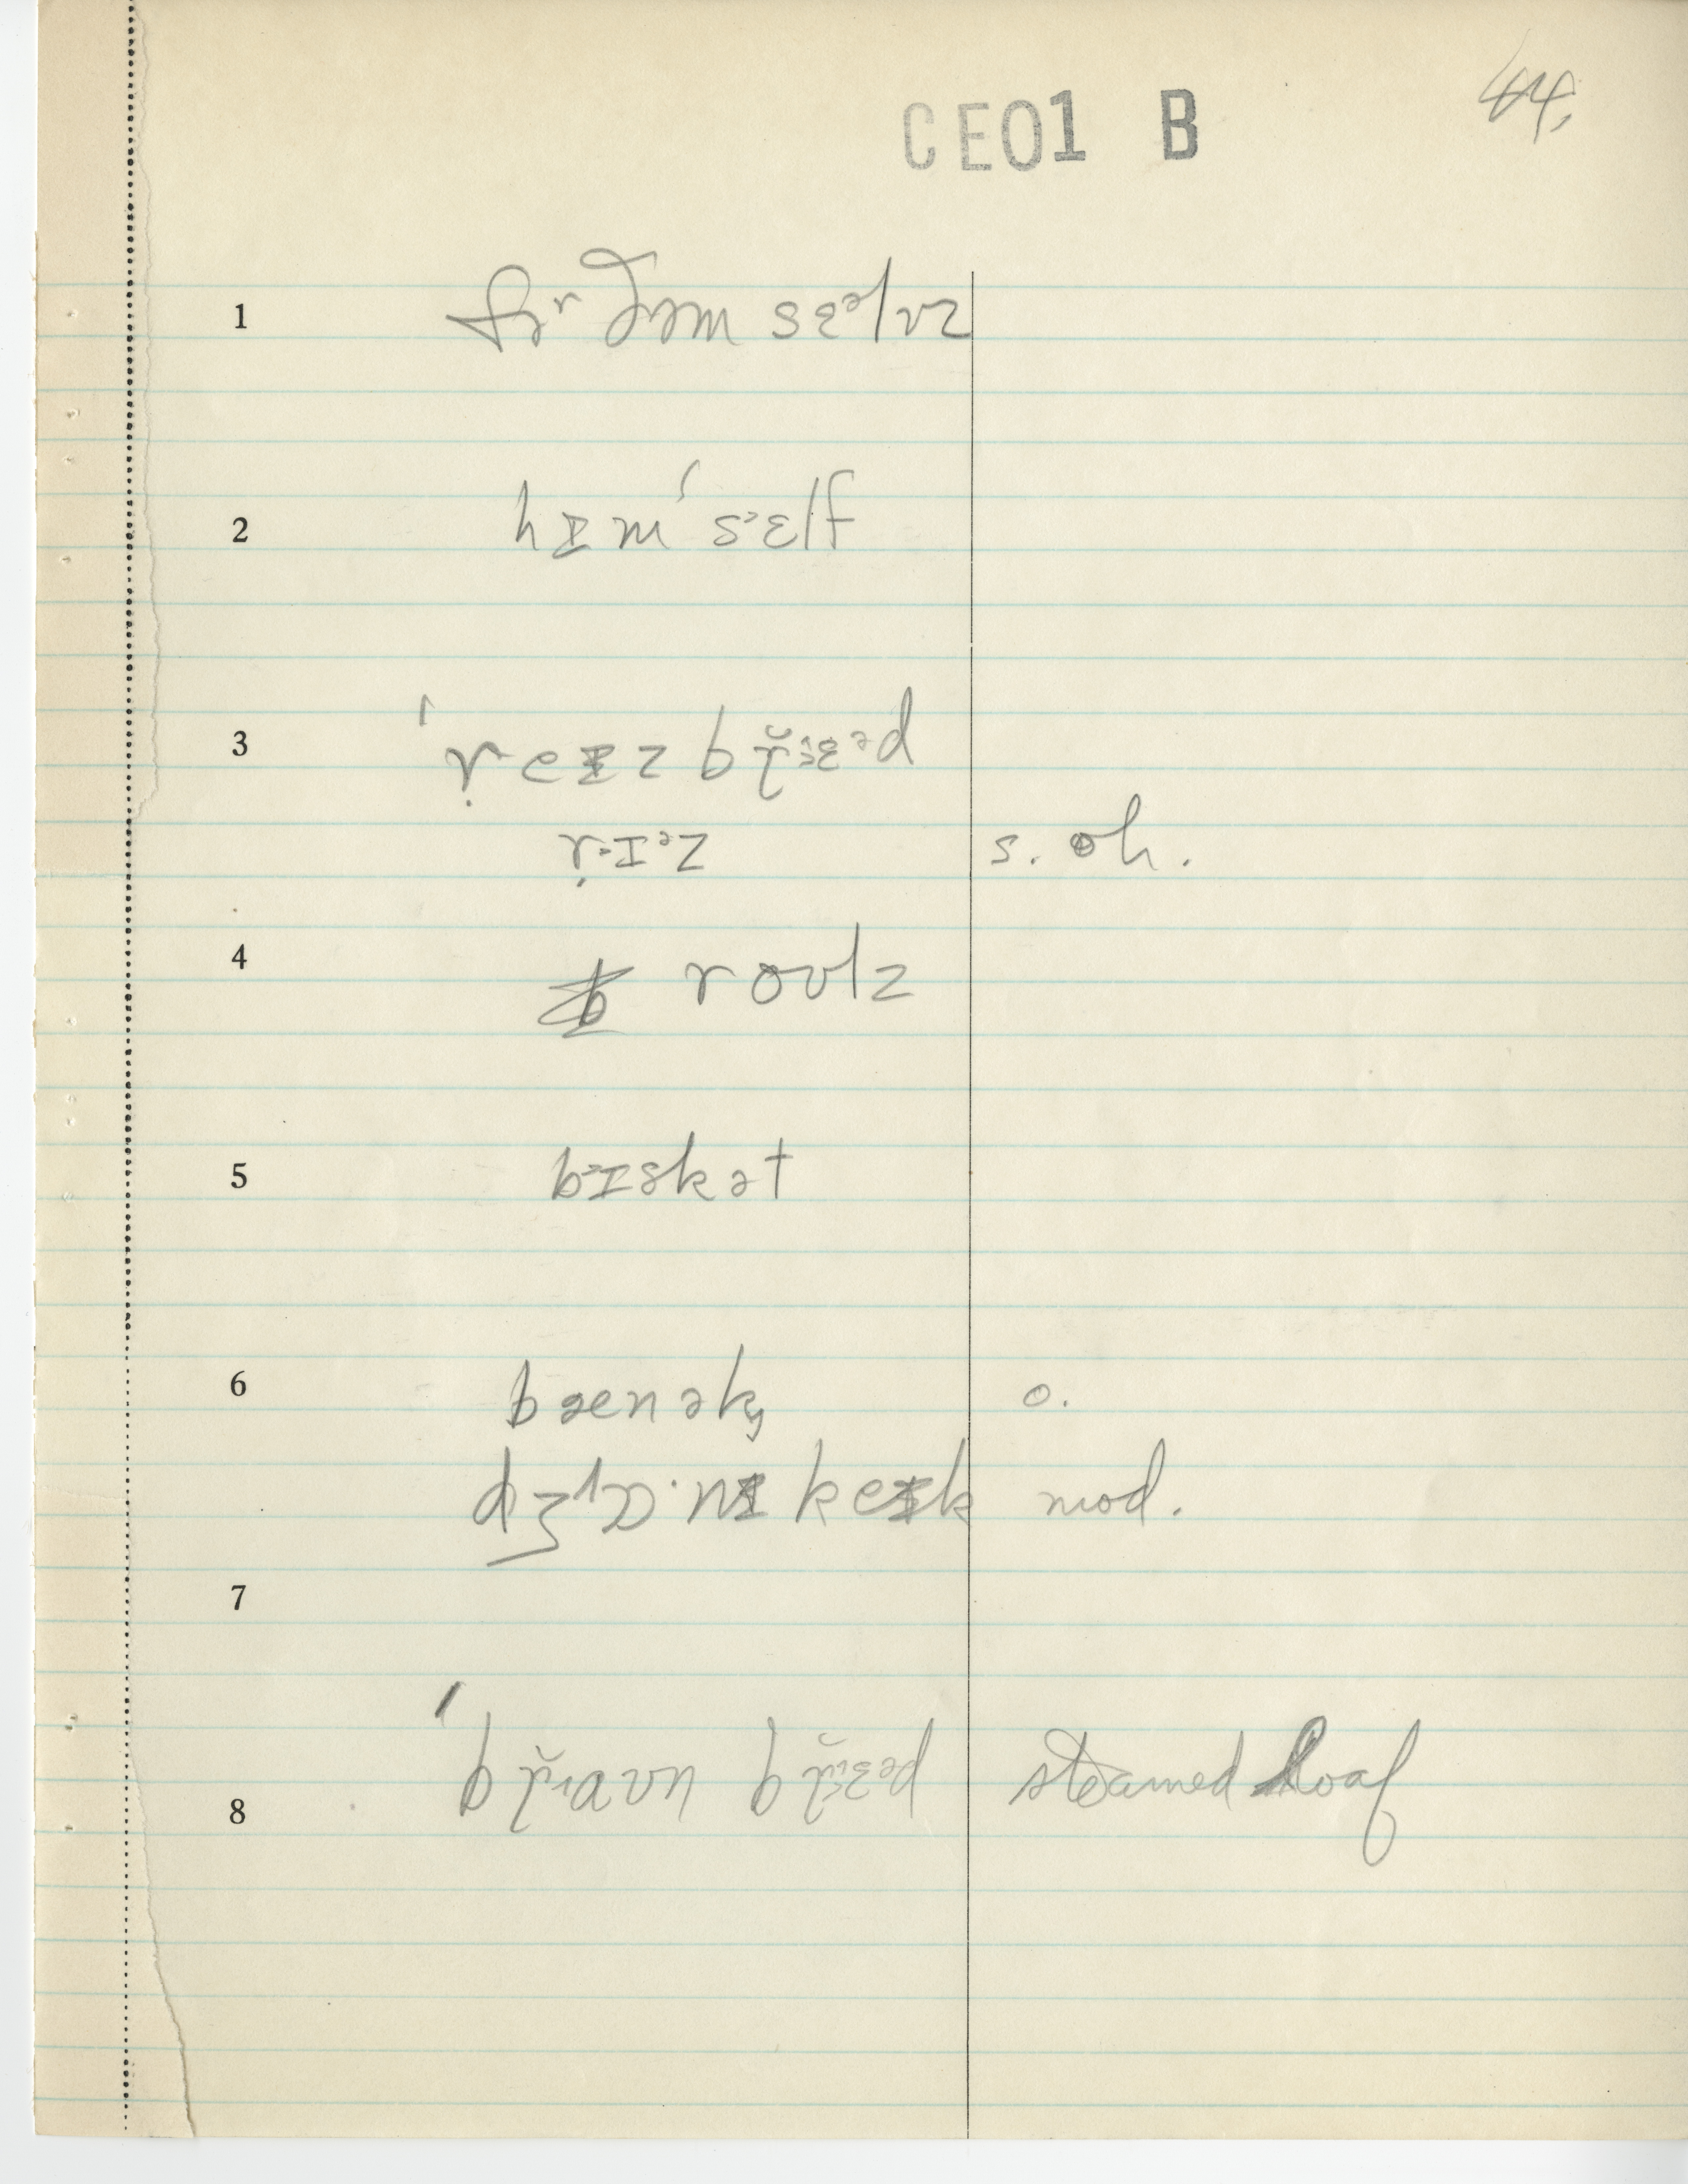 44.
CE01 B
1 fɚ ðəm sɛᵊlvz
2 hɪm ˈsɛlf
3 ˈreɪz brɛᵊd
rɪᵊz s. oh.
4 roʊlz
5 bɪskət
6 bænək, o.
dʒɒ·nɪ keɪk mod.
7
8 ˈbraʊn brɛᵊd steamed loaf